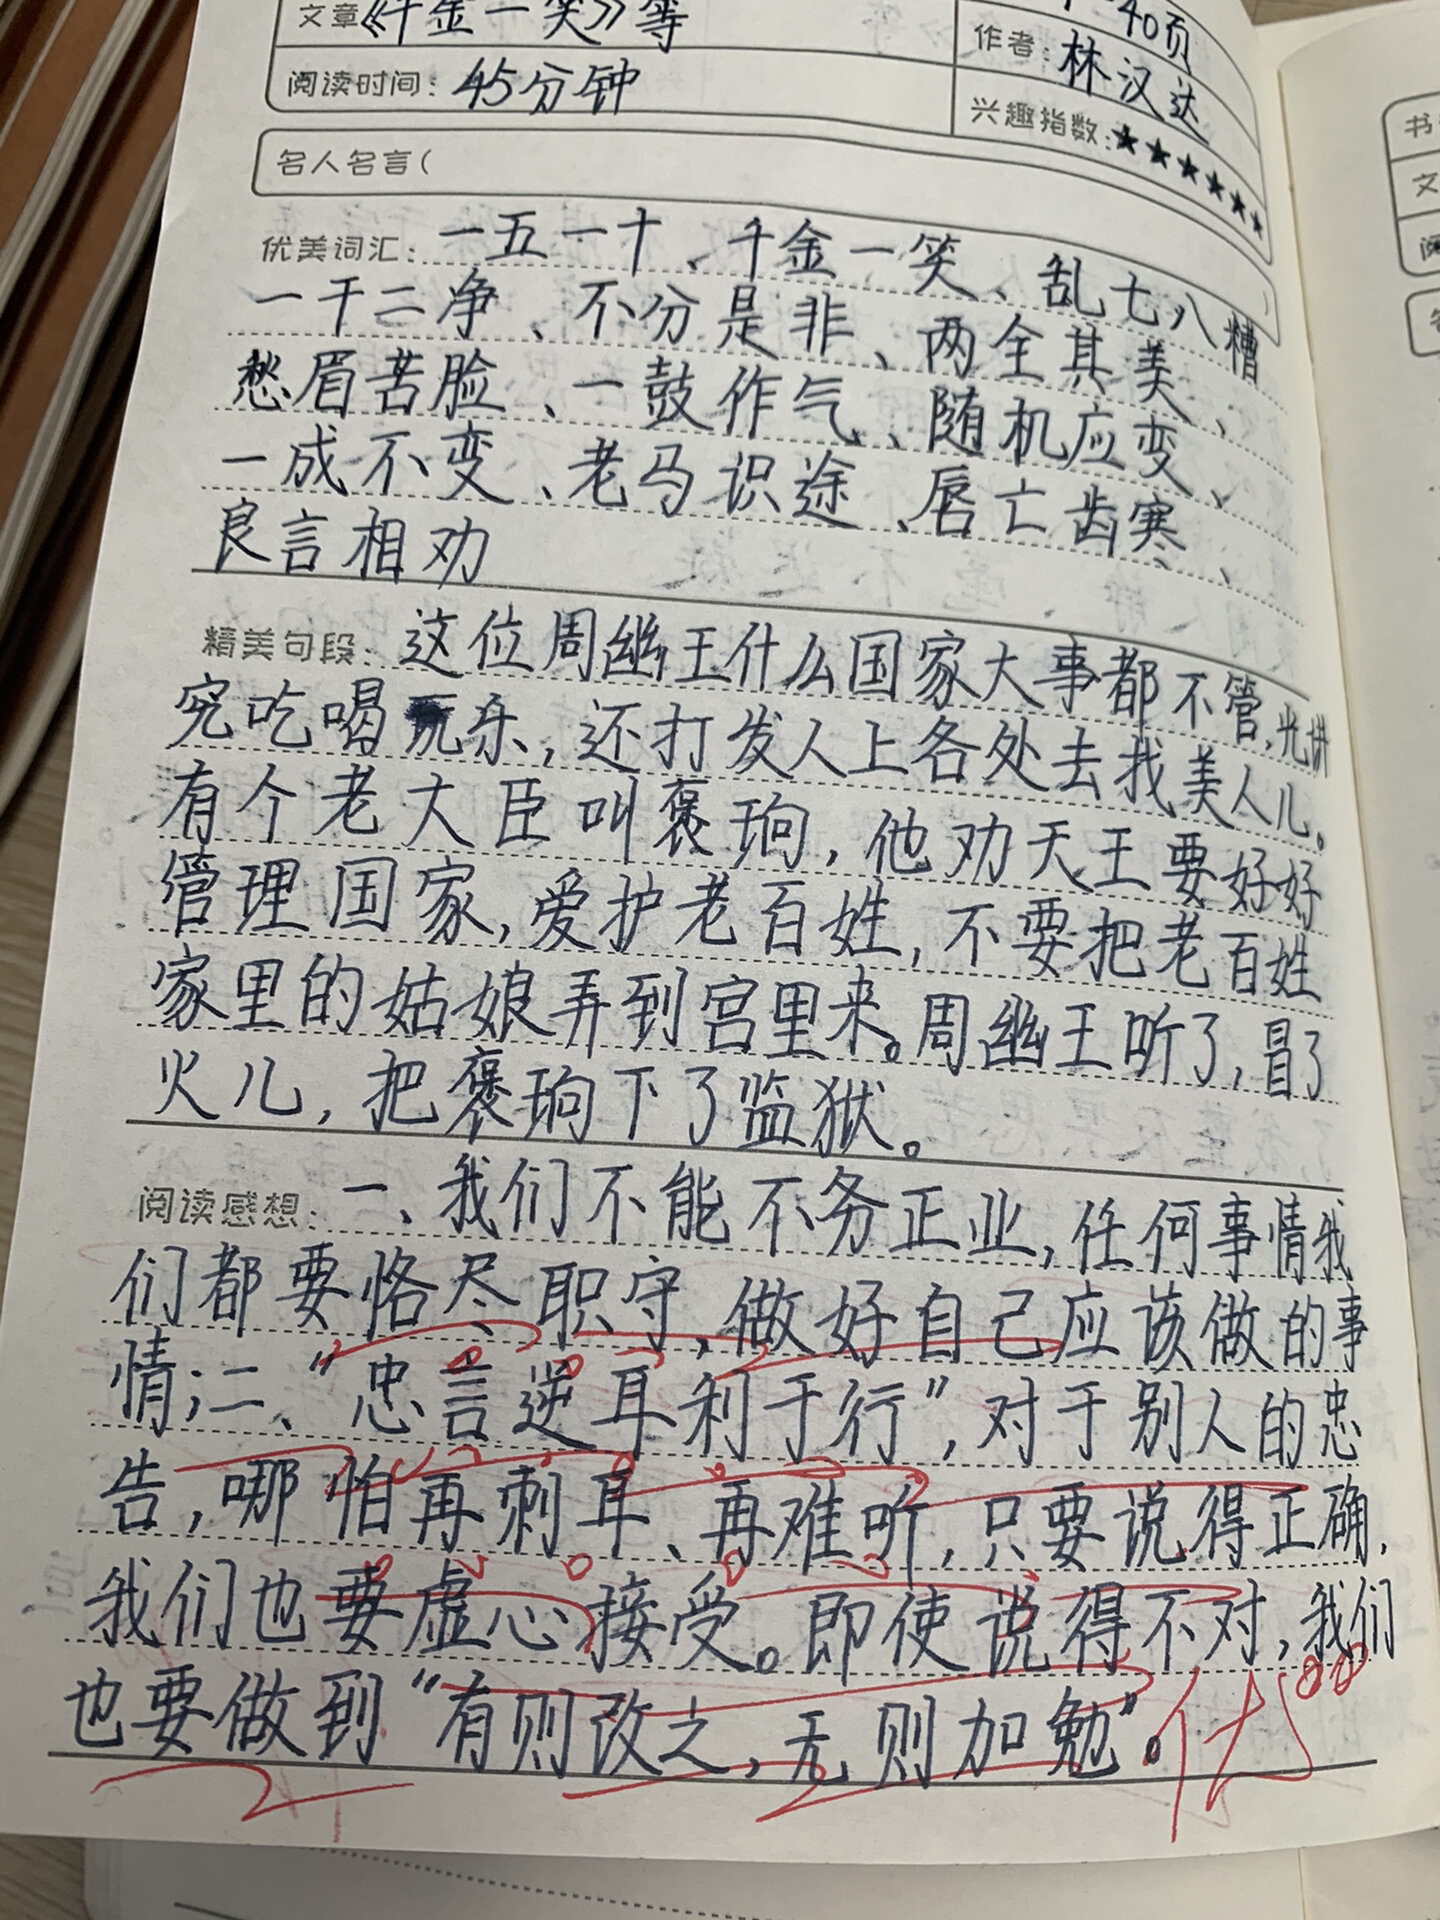 文章《千金一笑》等
40页
阅读时间：45分钟
作者：林汉达
兴趣指数：★★★★★★
名人名言（
优美词汇：一五一十、千金一笑、乱七八糟
一干二净、不分是非、两全其美、
愁眉苦脸、一鼓作气、随机应变、
一成不变、老马识途、唇亡齿寒、
良言相劝
精美句段：这位周幽王什么国家大事都不管，光讲
究吃喝玩乐，还打发人上各处去找美人儿。
有个老大臣叫褒珦，他劝天王要好好
管理国家，爱护老百姓，不要把老百姓
家里的姑娘弄到宫里来。周幽王听了，冒了
火儿，把褒珦下了监狱。
阅读感想：一、我们不能不务正业，任何事情我
们都要恪尽职守，做好自己应该做的事
情；二、“忠言逆耳利于行”，对于别人的忠
告，哪怕再刺耳、再难听，只要说得正确，
我们也要虚心接受。即使说得不对，我们
也要做到“有则改之，无则加勉”。
优